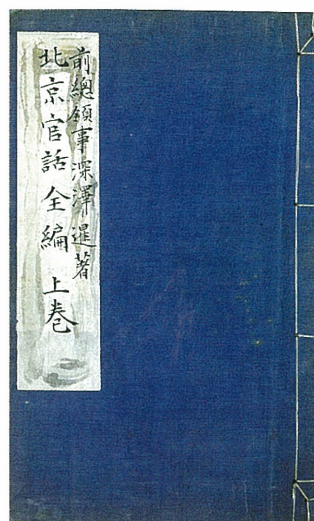 前總領事深澤暹著
北京官話全編 上卷